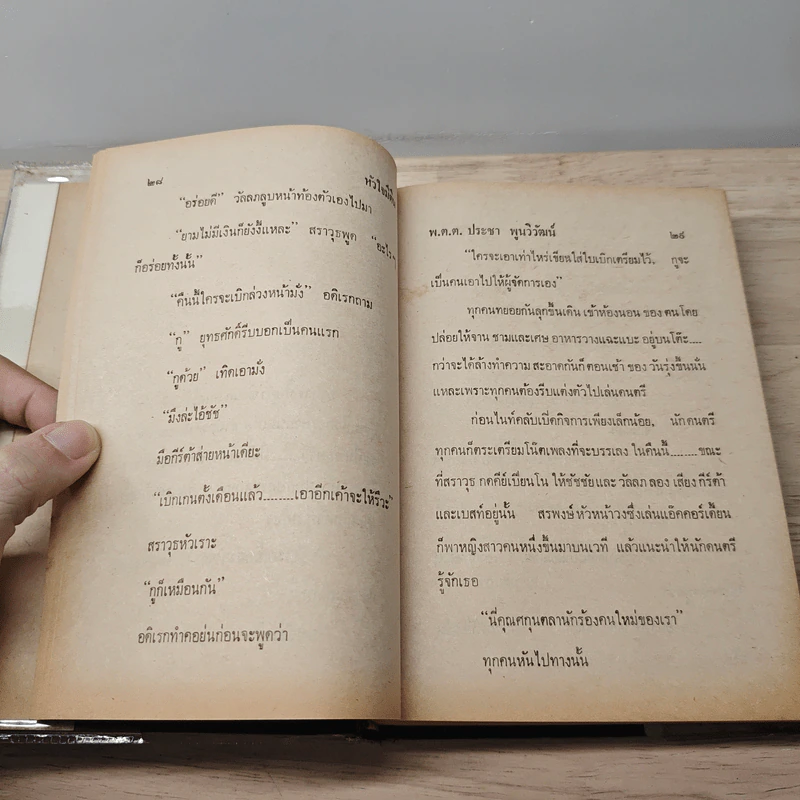 ๒๘
หัวใจมี
“อร่อยดี” วัลลภลูบหน้าท้องตัวเองไปมา
“ยามไม่มีเงินก็ยังงี้แหละ” สราวุธพูด “อะไรๆ
ก็อร่อยทั้งนั้น”
“คืนนี้ใครจะเบิกล่วงหน้ามั่ง” อดิเรกถาม
“กู” ยุทธศักดิ์รีบบอกเป็นคนแรก
“กูด้วย” เทิดเอามั่ง
“มึงล่ะไอ้ชัช”
มือกีร์ต้าส่ายหน้าเดียะ
“เบิกเกนตั้งเดือนแล้ว........เอาอีกเค้าจะให้รึวะ”
สราวุธหัวเราะ
“กูก็เหมือนกัน”
อดิเรกทำคอย่นก่อนจะพูดว่า
พ.ต.ต. ประชา พูนวิวัฒน์
๒๙
“ใครจะเอาเท่าไหร่เขียนใส่ใบเบิกเตรียมไว้, กูจะ
เป็นคนเอาไปให้ผู้จัดการเอง”
ทุกคนทยอยกันลุกขึ้นเดิน เข้าห้องนอน ของ ตนโดย
ปล่อยให้จาน ชามและเศษ อาหารวางแฉะแบะ อยู่บนโต๊ะ.....
กว่าจะได้ล้างทำความ สะอาดกันก็ ตอนเช้า ของ วันรุ่งขึ้นนั่น
แหละเพราะทุกคนต้องรีบแต่งตัวไปเล่นดนตรี
ก่อนไนท์คลับเปิดกิจการเพียงเล็กน้อย, นักดนตรี
ทุกคนก็ตระเตรียมโน๊ตเพลงที่จะบรรเลง ในคืนนี้........ขณะ
ที่สราวุธ กดคีย์เปียนโน ให้ชัชชัยและ วัลลภ ลอง เสียง กีร์ต้า
และเบสท์อยู่นั้น สรพงษ์ หัวหน้าวงซึ่งเล่นแอ๊คคอร์เดี้ยน
ก็พาหญิงสาวคนหนึ่งขึ้นมาบนเวที แล้วแนะนำให้นักดนตรี
รู้จักเธอ
“นี่คุณศกุนตลานักร้องคนใหม่ของเรา”
ทุกคนหันไปทางนั้น